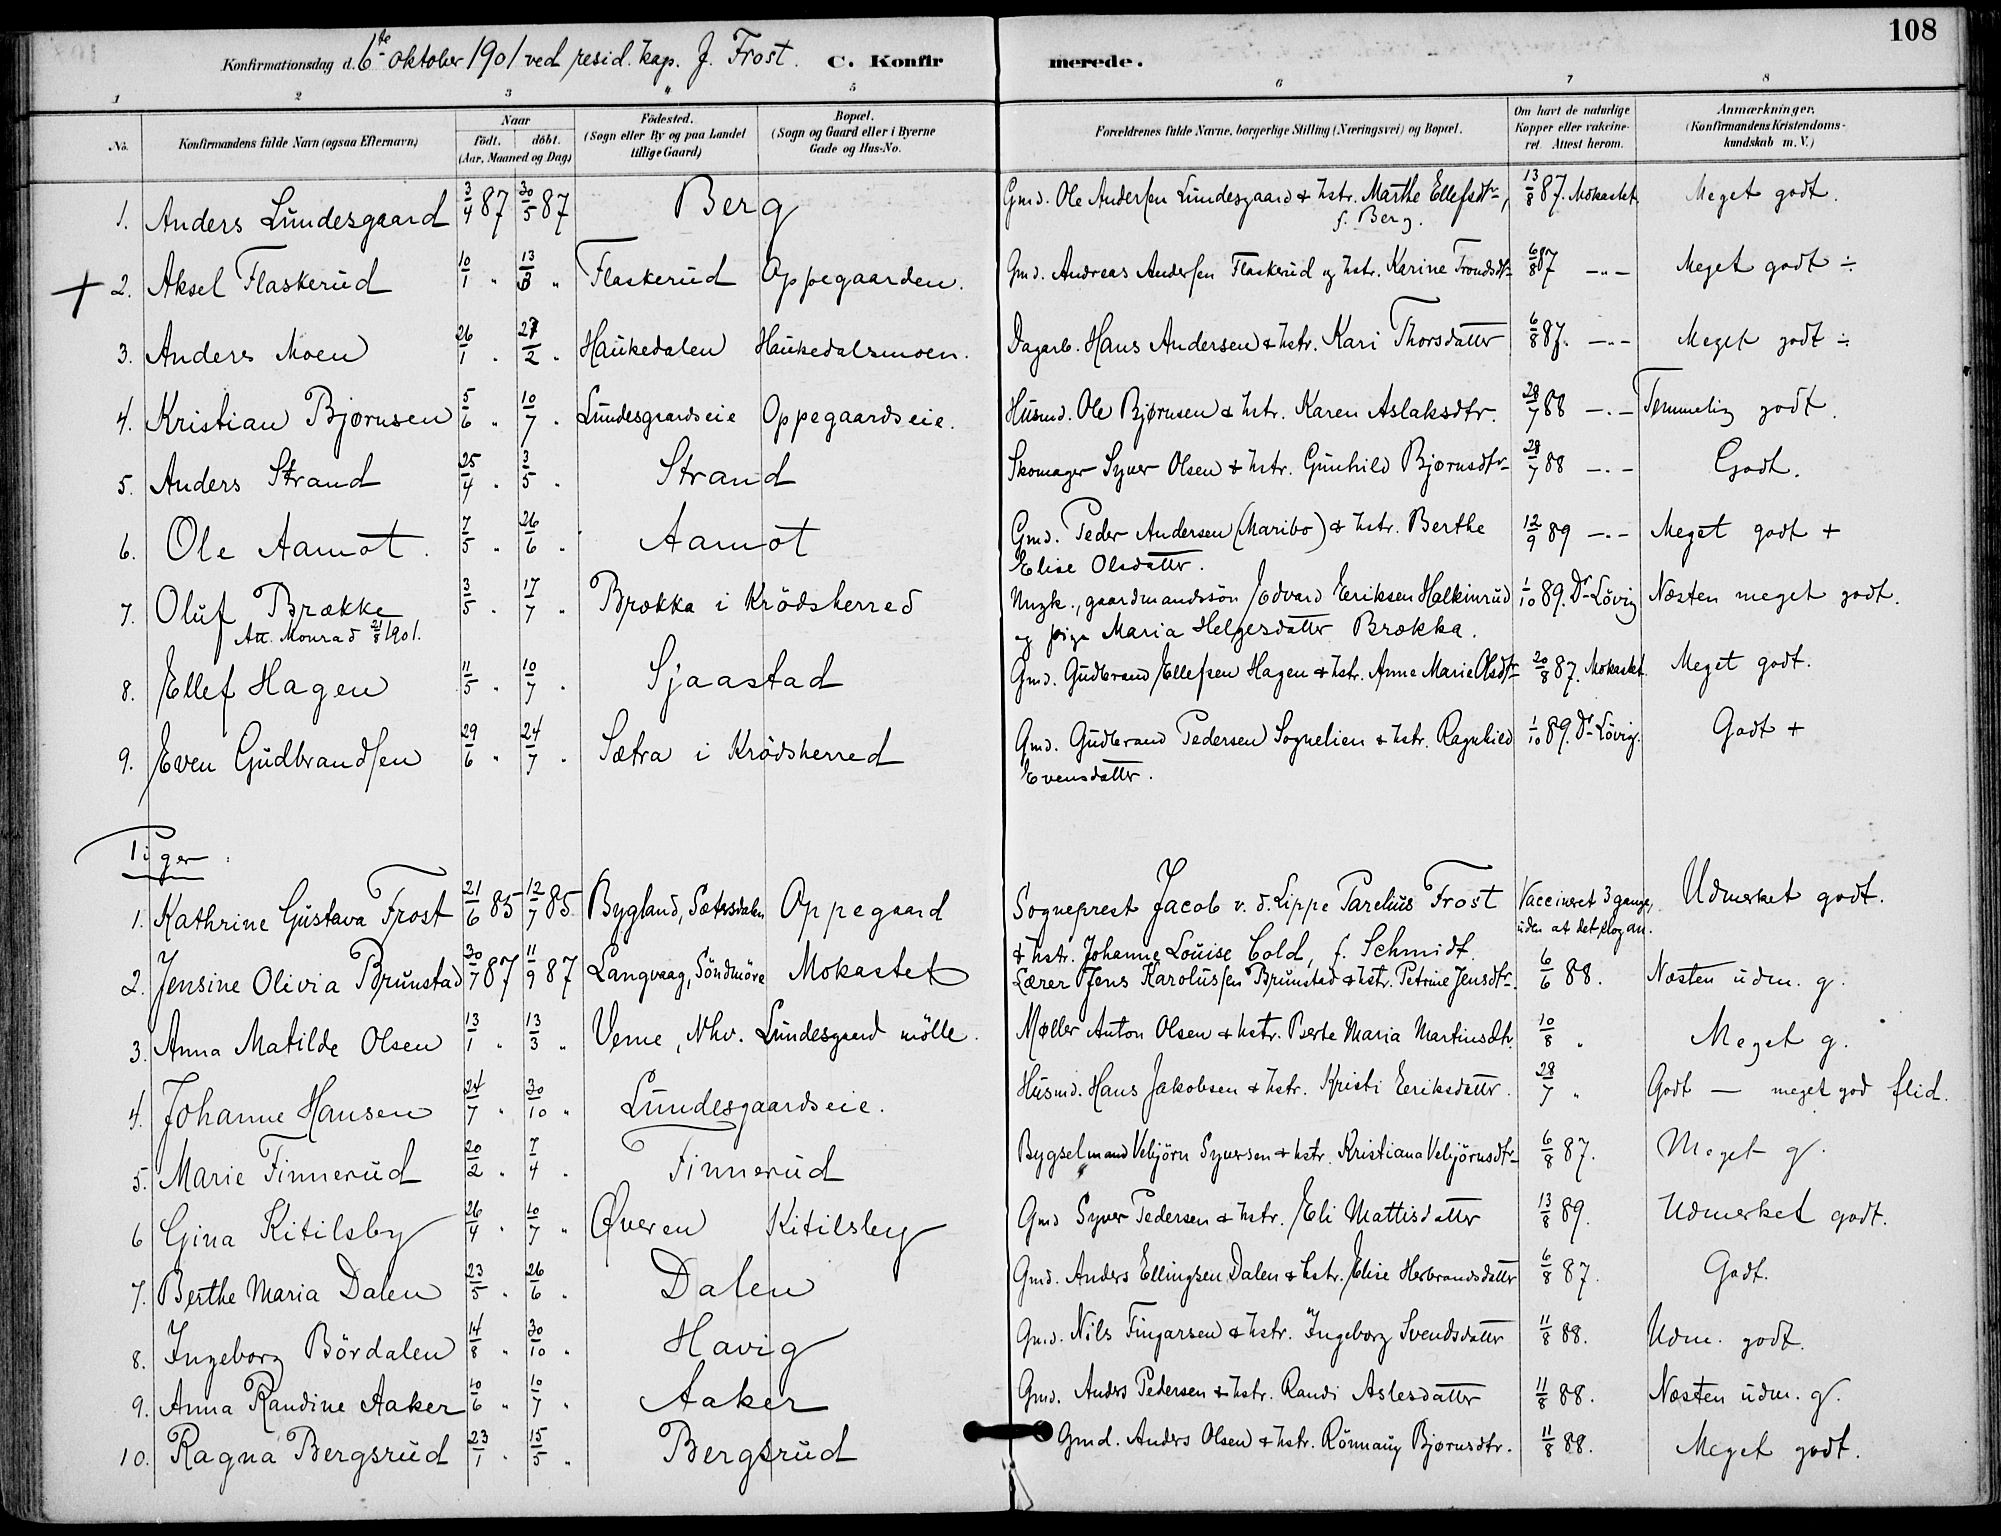 108
Konfirmationsdag d. 6te oktober 1901 ved resid. kap. J. Frost. C. Konfir merede.
1 2 3 4 5 6 7 8
No. Konfirmandens fulde Navn (ogsaa Efternavn) Naar födt. döbt. (Aar, Maaned og Dag) Födested. (Sogn eller By og paa Landet tillige Gaard) Bopæl. (Sogn og Gaard eller i Byerne Gade og Hus-No. Forældrenes fulde Navne, borgerlige Stilling (Næringsvei) og Bopæl. Om havt de naturlige Kopper eller vakcineret. Attest herom. Anmærkninger, (Konfirmandens Kristendomskundskab m. V.)
1. Anders Lundesgaard 3/4 87 30/5 87 Berg Gmd. Ole Andersen Lundesgaard & hstr. Marthe Ellefsdtr, 13/8 87. Mokastet. Meget godt.
f. Berg.
+ 2. Aksel Flaskerud 10/1 " 13/3 " Flaskerud Oppegaarden. Gmd. Andreas Andersen Flaskerud og hstr. Karine Trondsdtr 6/8 87 -"- Meget godt ÷
3. Anders Moen 26/1 " 27/2 " Haukedalen Haukedalsmoen. Dagarb. Hans Andersen & hstr. Kari Thorsdatter 6/8 87. -"- Meget godt ÷
4. Kristian Bjørnsen 5/6 " 10/7 " Lundesgaardseie Oppegaardseie. Husmd. Ole Bjørnsen & hstr. Karen Aslaksdtr. 28/7 88 -"- Temmelig godt.
5. Anders Strand 25/4 " 3/5 " Strand Skomager Syver Olsen & hstr. Gunhild Bjørnsdtr 28/7 88 -"- Godt.
6. Ole Aamot. 7/5 " 26/6 " Aamot Gmd. Peder Andersen (Maribo) & hstr. Berthe 12/9 89 -"- Meget godt +
Elise Olsdatter.
7. Oluf Brække 3/5 " 17/7 " Brækka i Krödsherred Ungk., gaardmandssön Edvard Eeriksen Halkinrud 1/10 89. Dr Lövig Næsten meget godt.
Att. Monrad 21/8 1901. og pige Maria Helgesdatter Brækka.
8. Ellef Hagen 11/5 " 10/7 " Sjaastad Gmd. Gudbrand Ellefsen Hagen & hstr. Anne Marie Olsdtr 20/8 87. Mokastet. Meget godt.
9. Even Gudbrandsen 29/6 " 24/7 " Sætra i Krödsherred Gmd. Gudbrand Pedersen Sognelien & hstr. Ragnhild 1/10 89. Dr Lövig. Godt +
Evensdatter.
Piger:
1. Kathrine Gustava Frost 21/6 85 12/7 85. Bygland, Sætersdalen Oppegaard Sogneprest Jacob v. d. Lippe Parelius Frost Vaccineret 3 gange, Udmerket godt.
& hstr. Johanne Louise Cold, f. Schmidt. uden at det slog an.
2. Jensine Olivia Brunstad 30/7 87 11/9 87 Langvaag, Söndmöre Mokastet Lærer Jens Karolussen Brunstad & hstr. Petrine Jensdtr. 6/6 88. Næsten udm. g.
3. Anna Matilde Olsen 13/1 " 13/3 " Veme, Nhv. Lundesgaard mölle. Møller Anton Olsen & hstr. Berte Maria Martinsdtr. 10/8 " Meget g.
4. Johanne Hansen 24/7 " 30/10 " Lundesgaardseie. Husmd. Hans Jakobsen & hstr. Kristi Eeriksdatter. 28/7 " Godt — meget god flid.
5. Marie Finnerud 20/2 " 7/4 " Finnerud Bygselmand Vebjörn Syversen & hstr. Kristiana Vebjörnsdtr 6/8 87. Meget g.
6 Gina Kitilsby 26/4 " 10/7 " Øveren Kitilsby Gmd Syver Pedersen & hstr. Eli Mattisdatter 13/8 89. Udmerket godt.
7. Berthe Maria Dalen 23/5 " 26/6 " Dalen Gmd. Anders Ellingsen Dalen & hstr. Elise Herbrandsdatter 6/8 87. Godt.
8. Ingeborg Bördalen 14/8 " 30/10 " Havig Gmd. Nils Fingarsen & hstr. Ingeborg Svendsdatter 11/8 88. Udm. godt.
9. Anna Randine Aaker 10/6 " 10/7 " Aaker Gmd. Anders Pedersen & hstr. Randi Aslesdatter 11/8 88. Næsten udm. g.
10. Ragna Bergsrud 23/1 " 15/5 " Bergsrud Gmd. Anders Olsen & hstr. Rönnaug Bjørnsdtr. 11/8 88. Meget godt.